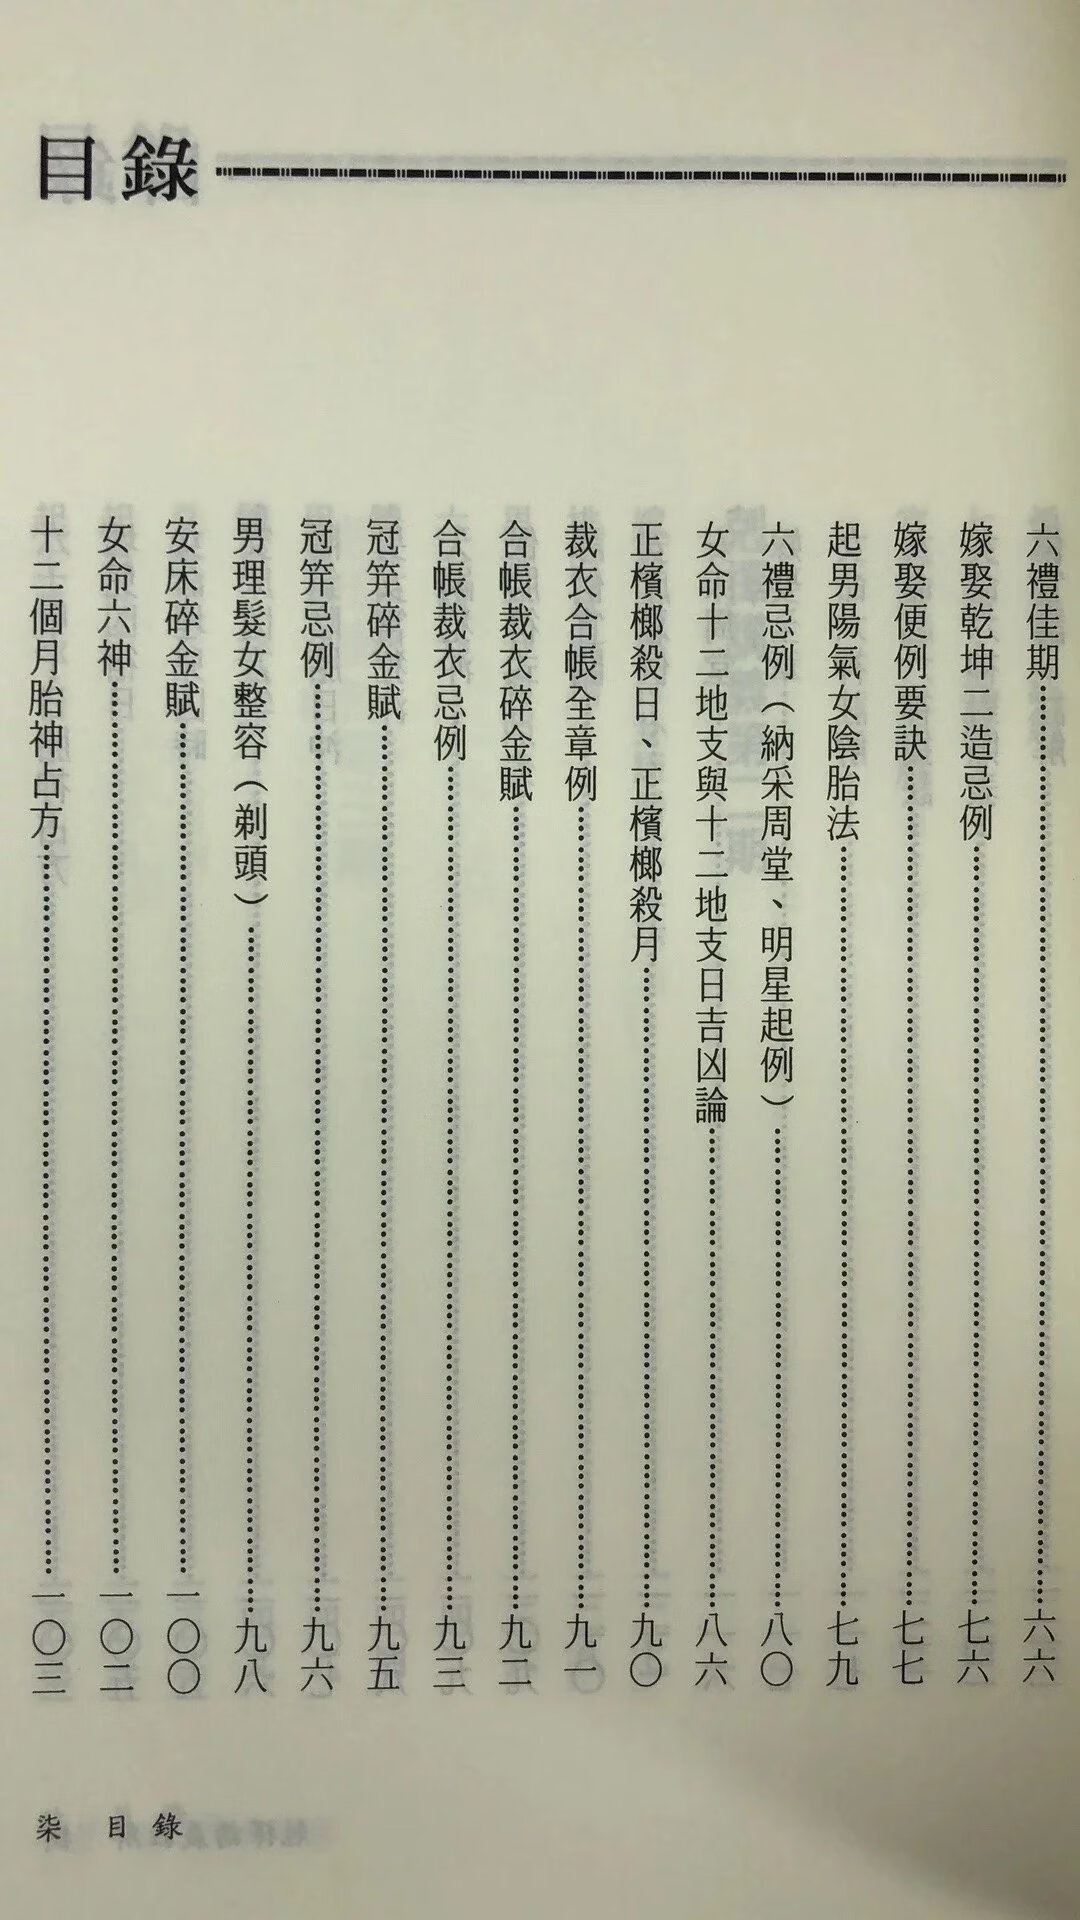 目錄
六禮佳期……六六
嫁娶乾坤二造忌例……七六
嫁娶便例要訣……七七
起男陽氣女陰胎法……七九
六禮忌例（納采周堂、明星起例）……八〇
女命十二地支與十二地支日吉凶論……八六
正檳榔殺日、正檳榔殺月……九〇
裁衣合帳全章例……九一
合帳裁衣碎金賦……九二
合帳裁衣忌例……九三
冠笄碎金賦……九五
冠笄忌例……九六
男理髮女整容（剃頭）……九八
安床碎金賦……一〇〇
女命六神……一〇二
十二個月胎神占方……一〇三
柒 目錄